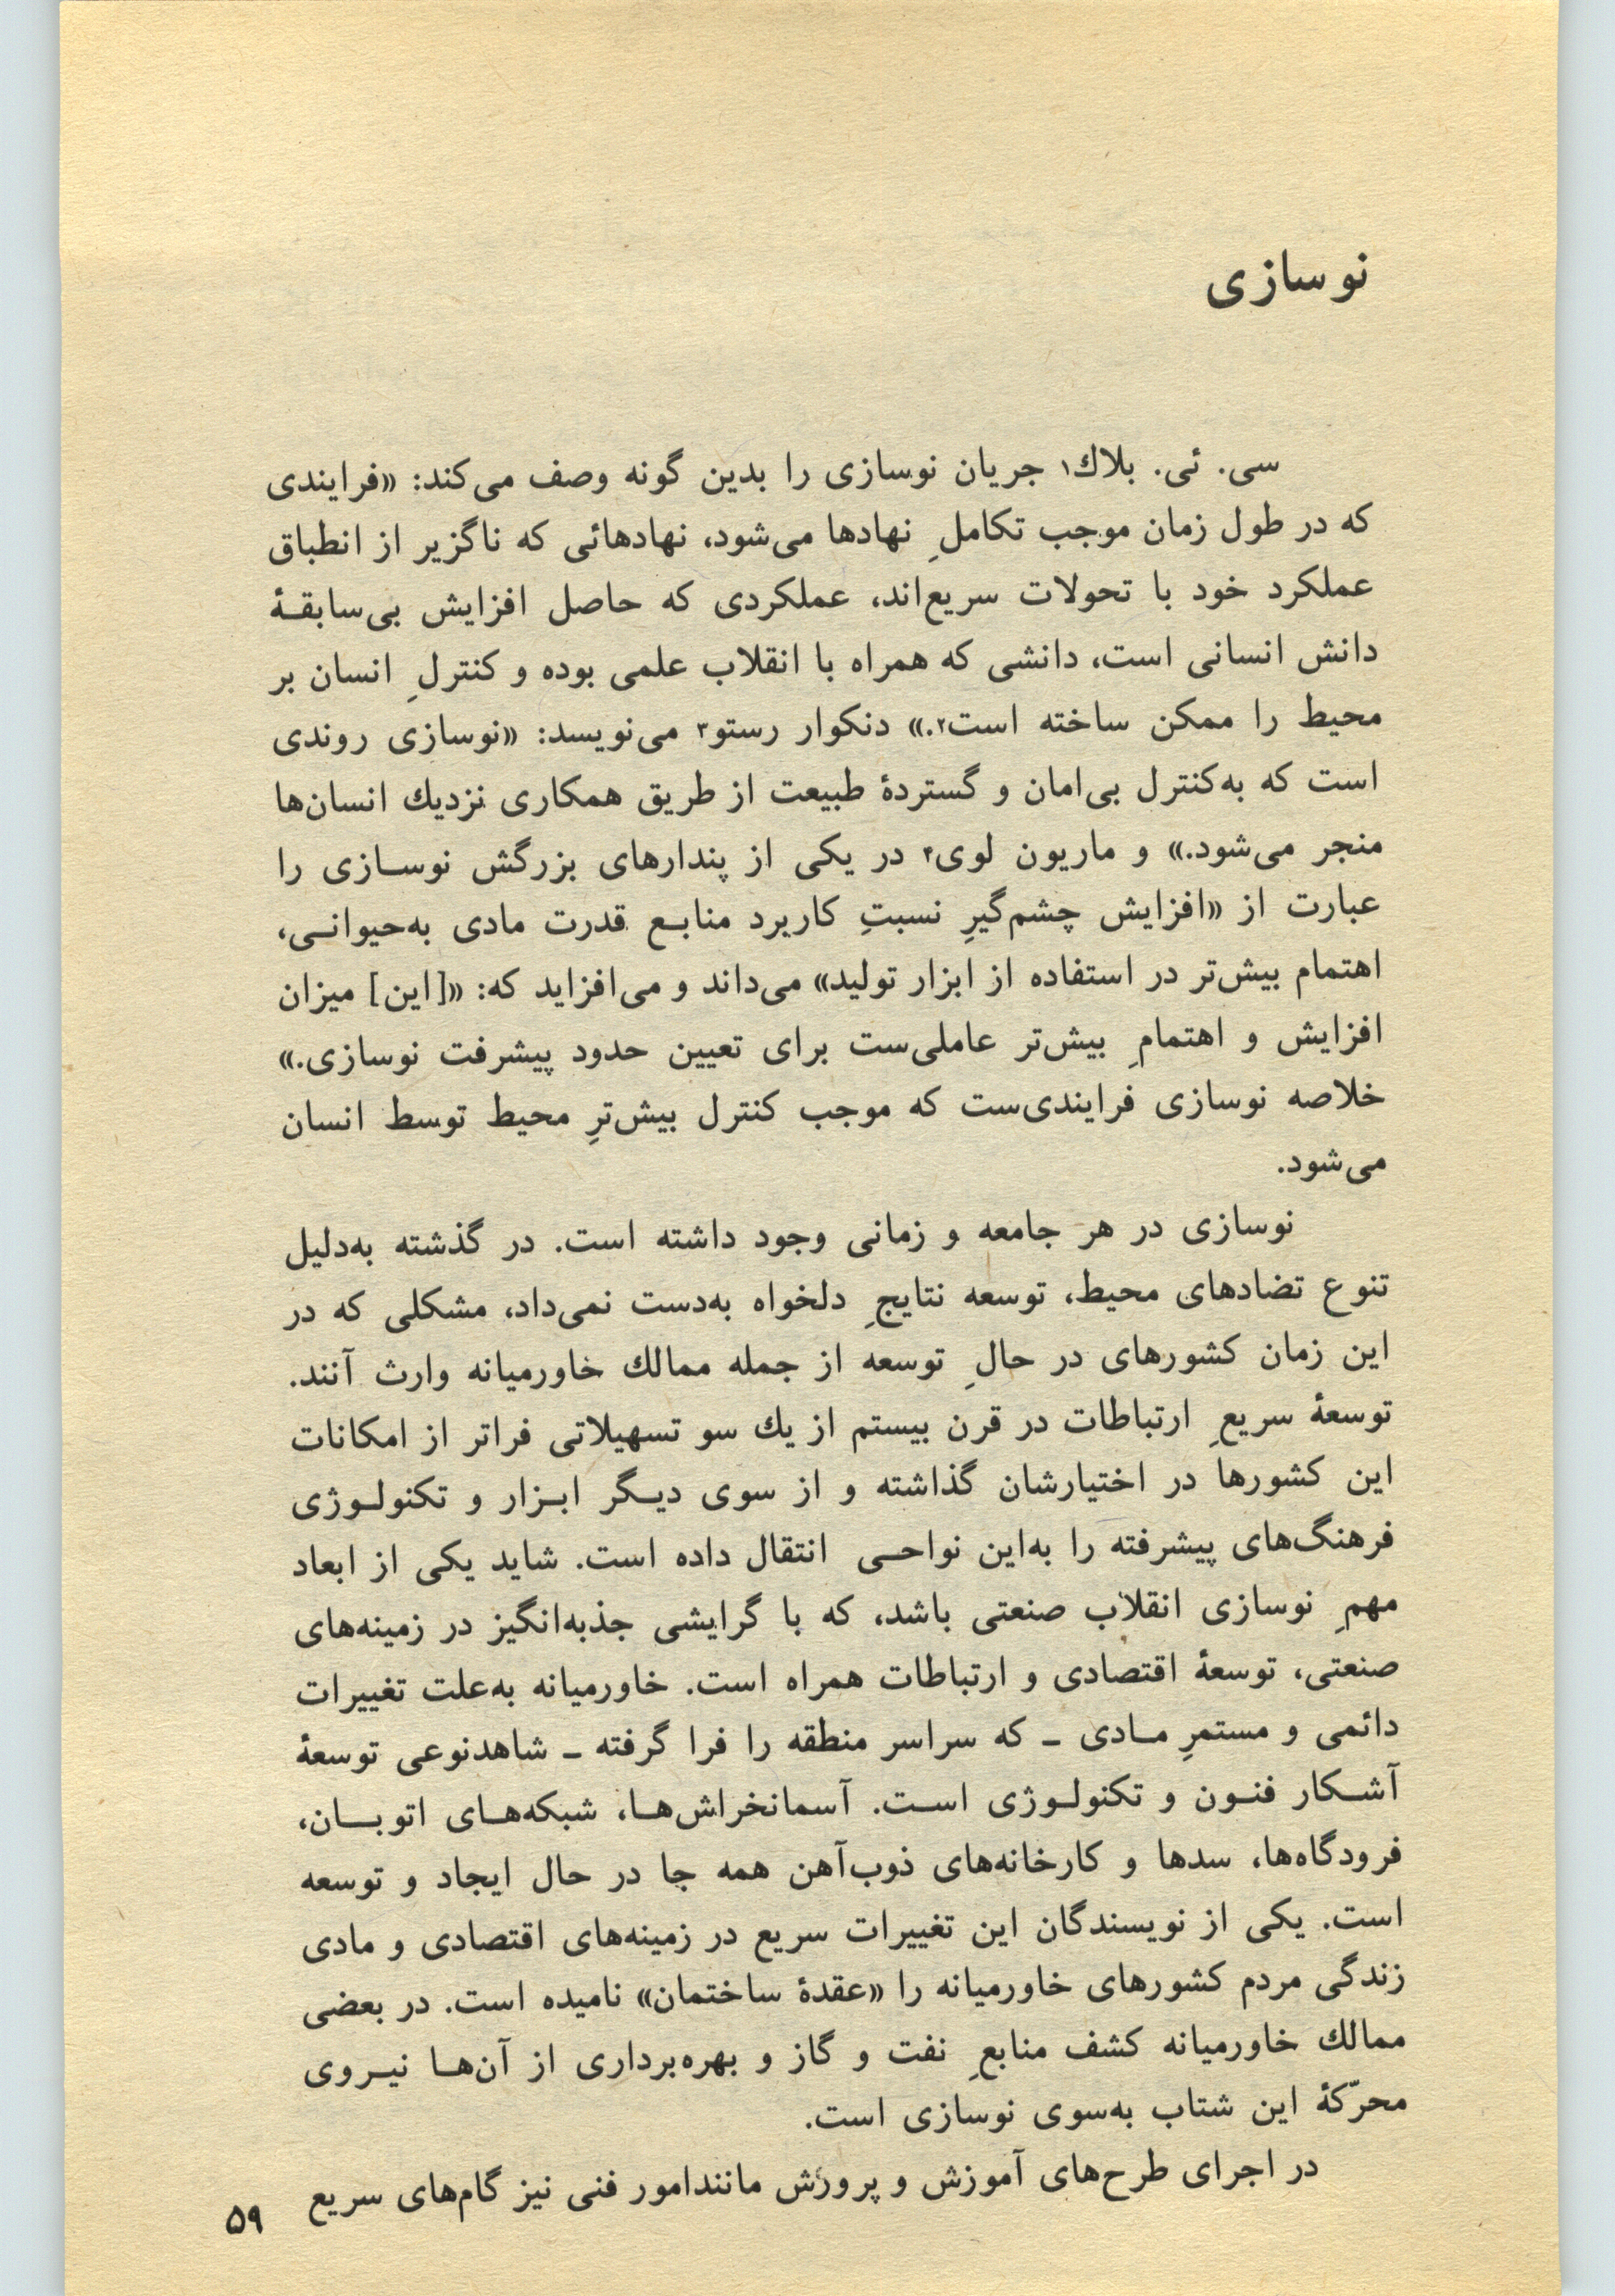 نوسازی
سی. ئی. بلاك۱ جریان نوسازی را بدین گونه وصف می‌کند: «فرایندی
که در طول زمان موجب تکاملِ نهادها می‌شود، نهادهائی که ناگزیر از انطباق
عملکرد خود با تحولات سریع‌اند، عملکردی که حاصل افزایش بی‌سابقـۀ
دانش انسانی است، دانشی که همراه با انقلاب علمی بوده و کنترلِ انسان بر
محیط را ممکن ساخته است۲.» دنکوار رستو۳ می‌نویسد: «نوسازی روندی
است که به‌کنترل بی‌امان و گستردۀ طبیعت از طریق همکاری نزدیك انسان‌ها
منجر می‌شود.» و ماریون لوی۴ در یکی از پندارهای بزرگش نوسـازی را
عبارت از «افزایش چشم‌گیرِ نسبتِ کاربرد منابـع قدرت مادی به‌حیوانـی،
اهتمام بیش‌تر در استفاده از ابزار تولید» می‌داند و می‌افزاید که: «[این] میزان
افزایش و اهتمامِ بیش‌تر عاملی‌ست برای تعیین حدود پیشرفت نوسازی.»
خلاصه نوسازی فرایندی‌ست که موجب کنترل بیش‌ترِ محیط توسط انسان
می‌شود.
نوسازی در هر جامعه و زمانی وجود داشته است. در گذشته به‌دلیل
تنوع تضادهای محیط، توسعه نتایجِ دلخواه به‌دست نمی‌داد، مشکلی که در
این زمان کشورهای در حالِ توسعه از جمله ممالك خاورمیانه وارث آنند.
توسعۀ سریعِ ارتباطات در قرن بیستم از یك سو تسهیلاتی فراتر از امکانات
این کشورها در اختیارشان گذاشته و از سوی دیـگر ابـزار و تکنولـوژی
فرهنگ‌های پیشرفته را به‌این نواحـی انتقال داده است. شاید یکی از ابعاد
مهمِ نوسازی انقلاب صنعتی باشد، که با گرایشی جذبه‌انگیز در زمینه‌های
صنعتی، توسعۀ اقتصادی و ارتباطات همراه است. خاورمیانه به‌علت تغییرات
دائمی و مستمرِ مـادی ـ که سراسر منطقه را فرا گرفته ـ شاهدنوعی توسعۀ
آشـکار فنـون و تکنولـوژی اسـت. آسمانخراش‌هـا، شبکه‌هـای اتوبـــان،
فرودگاه‌ها، سدها و کارخانه‌های ذوب‌آهن همه جا در حال ایجاد و توسعه
است. یکی از نویسندگان این تغییرات سریع در زمینه‌های اقتصادی و مادی
زندگی مردم کشورهای خاورمیانه را «عقدۀ ساختمان» نامیده است. در بعضی
ممالك خاورمیانه کشف منابعِ نفت و گاز و بهره‌برداری از آن‌هـا نیـروی
محرّکۀ این شتاب به‌سوی نوسازی است.
در اجرای طرح‌های آموزش و پرورش مانندامور فنی نیز گام‌های سریع
۵۹